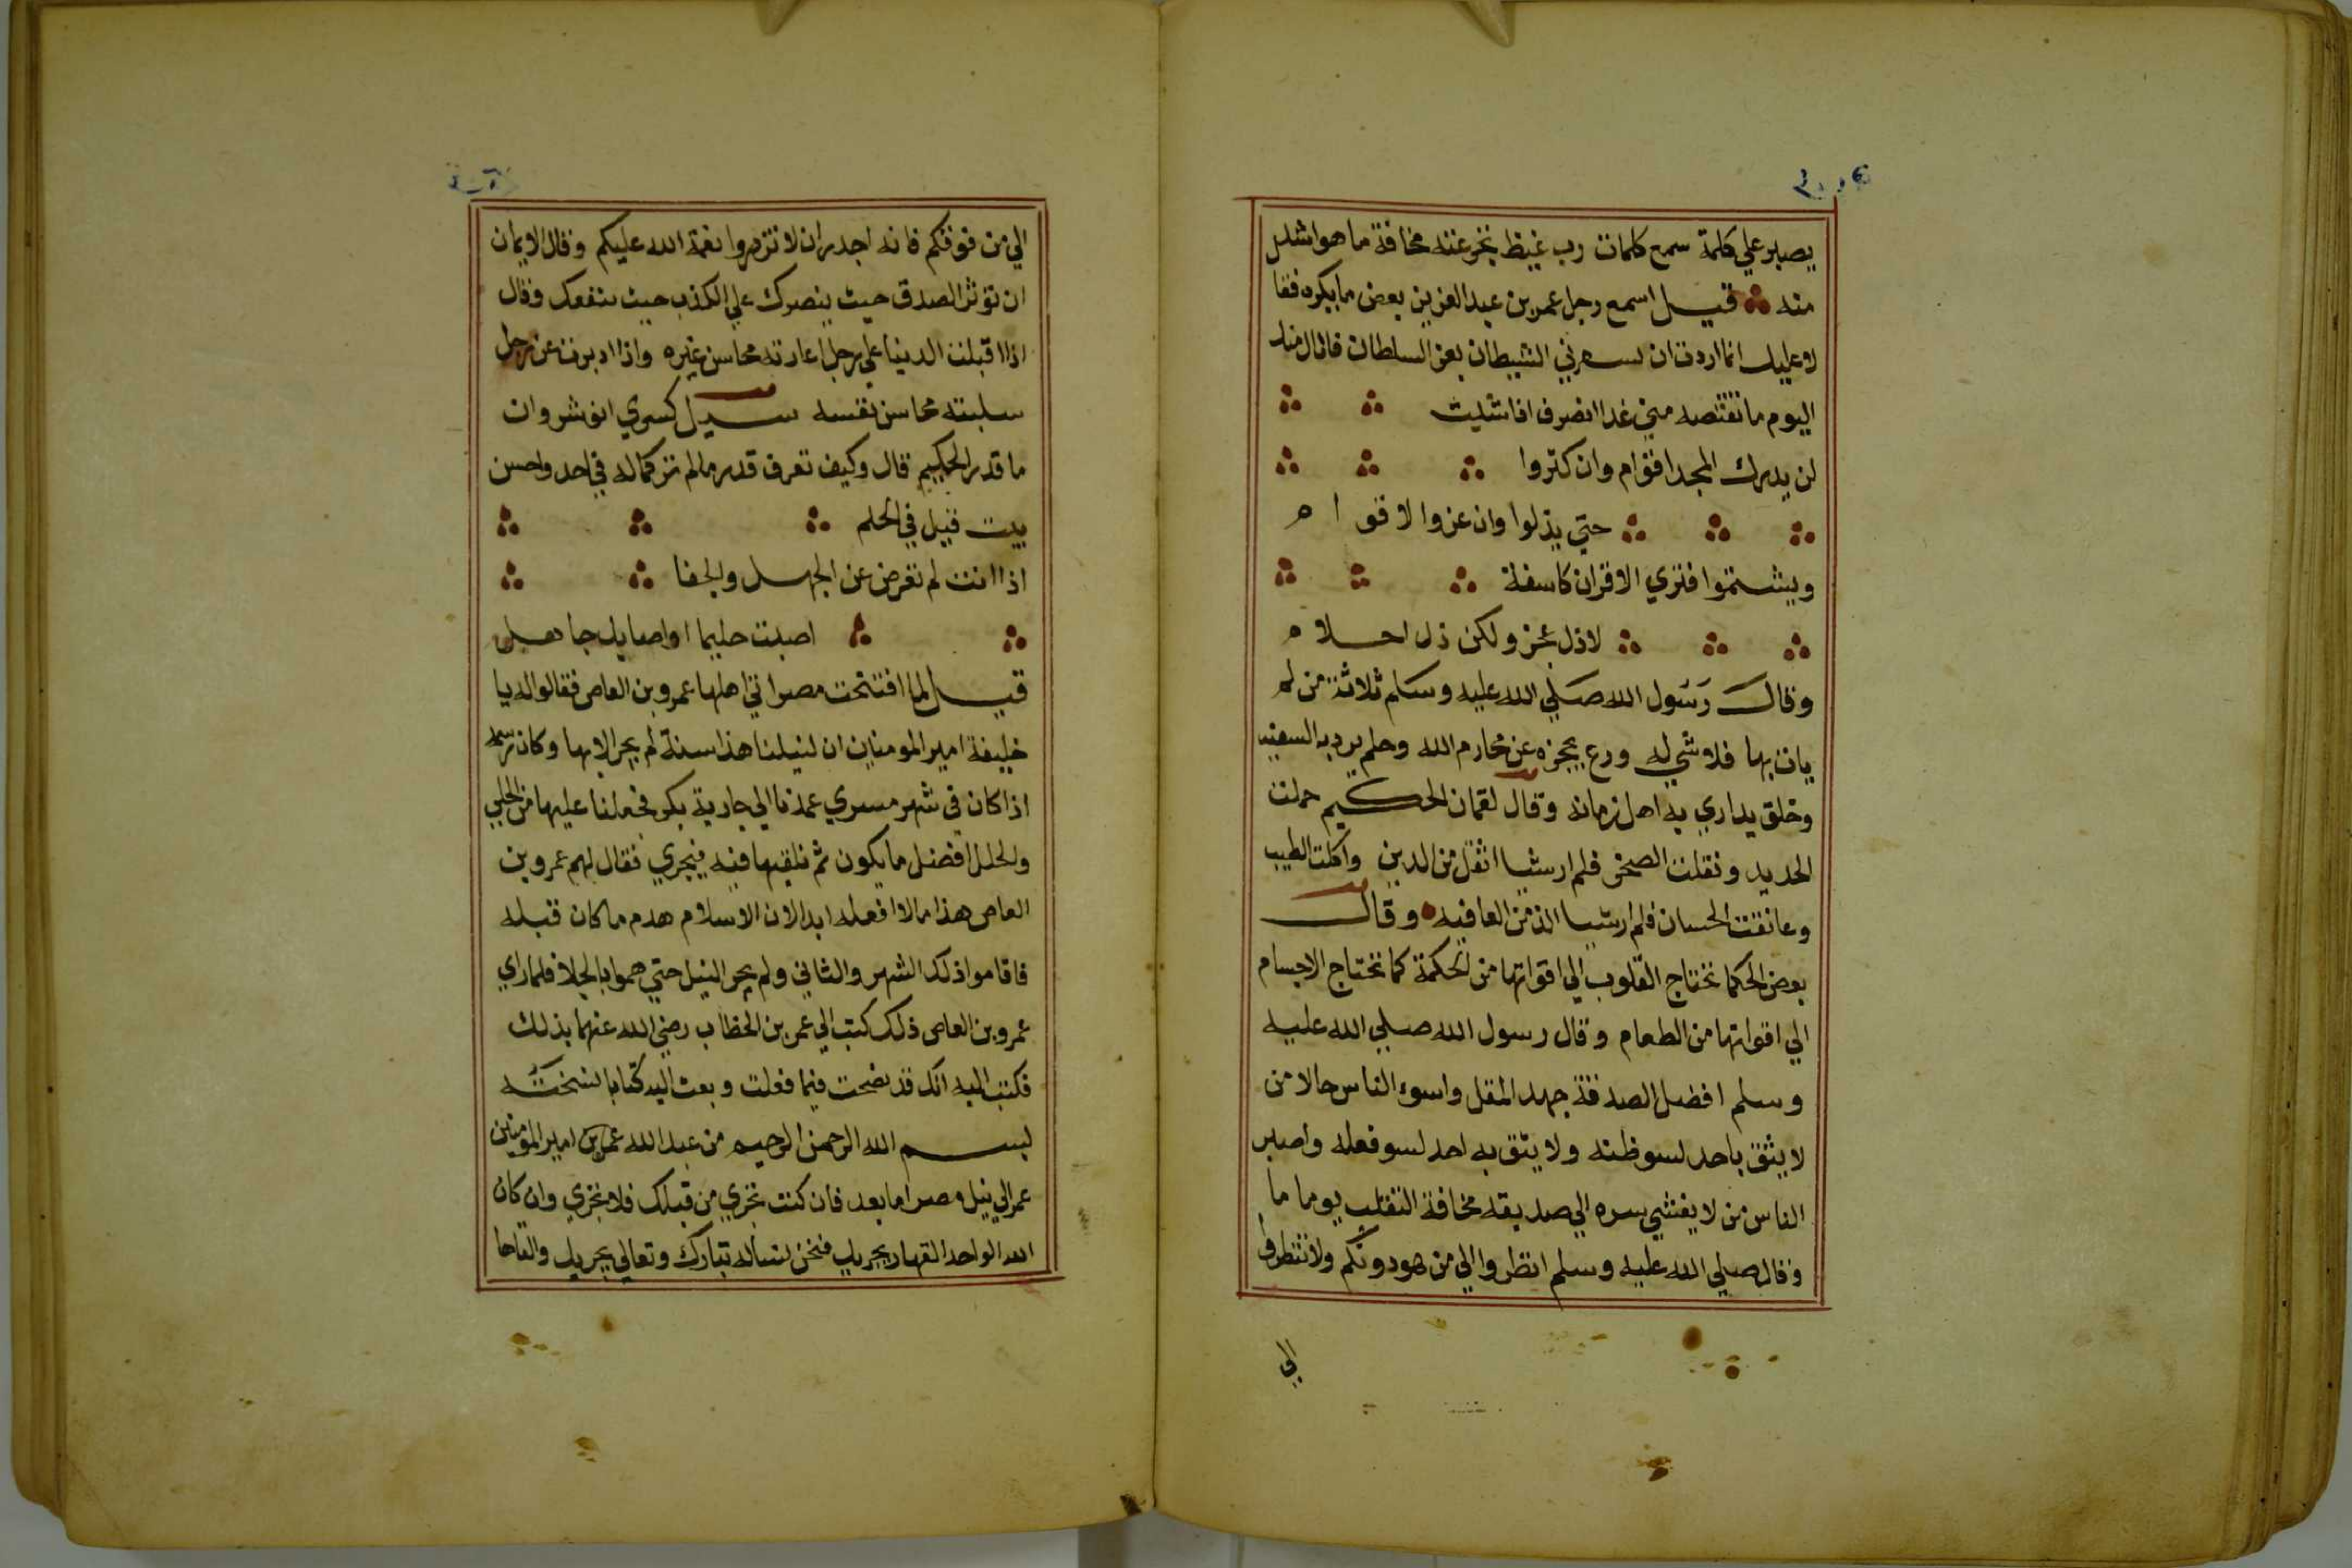 يصبر علي كلمة سمع كلمات رب غيظ تجرعته مخافة ما هو اشد
منه قيل اسمع رجل عمر بن عبد العزيز بعض ما يكره فقا
لا عليك انما اردت ان يستفزني الشيطان بعز السلطان فانال منك
اليوم ما تقتصه مني غدا انصرف اذا شئت
لن يدرك المجد اقوام وان كثروا
حتي يذلوا وان عزوا لاقوا م
ويشتموا فتري الاقران كاسفة
لاذل عجز ولكن ذل احلام
وقال رسول الله صلي الله عليه وسلم ثلاثة من لم
يات بها فلا شي له ورع يحجزه عن محارم الله وحلم يرد به السفيه
وخلق يداري به اهل زمانه وقال لقمان الحكيم حملت
الحديد ونقلت الصخر فلم ار شيا اثقل من الدين واكلت الطيب
وعانقت الحسان فلم ار شيا الذ من العافيه وقال
بعض الحكما تحتاج القلوب الي اقواتها من الحكمة كما تحتاج الاجسام
الي اقواتها من الطعام وقال رسول الله صلي الله عليه
وسلم افضل الصدقة جهد المقل واسوء الناس حالا من
لا يثق باحد لسو ظنه ولا يثق به احد لسو فعله واصبر
الناس من لا يفشي سره الي صديقه مخافة التقلب يوما ما
وقال صلي الله عليه وسلم انظروا الي من هو دونكم ولا تنظروا
الي
الي من فوقكم فانه اجدر ان لا تزدروا نعمة الله عليكم وقال الايمان
ان تؤثر الصدق حيث يضرك علي الكذب حيث ينفعك وقال
اذا اقبلت الدنيا علي رجل اعارته محاسن غيره واذا ادبرت عن رجل
سلبته محاسن نفسه سيل كسري انوشروان
ما قدر الحكيم قال وكيف تعرف قدر ما لم تر كماله في احد واحسن
بيت قيل في الحلم
اذا انت لم تعرض عن الجهل والخنا
اصبت حليما او اصابك جاهل
قيل لما افتتحت مصر اتي اهلها عمرو بن العاص فقالوا له يا
خليفة امير المومنين ان لنيلنا هذا سنة لم يجر الا بها وكان
اذا كان في شهر مسري عمدنا الي جارية بكر فجعلنا عليها من الحلي
والحلل افضل ما يكون ثم نلقيها فيه فيجري فقال لهم عمرو بن
العاص هذا ما لا افعله ابدا لان الاسلام هدم ما كان قبله
فاقاموا ذلك الشهر والثاني ولم يجر النيل حتي هموا بالجلا فلما راي
عمرو بن العاص ذلك كتب الي عمر بن الخطاب رضي الله عنهما بذلك
فكتب اليه انك قد نصحت فيما فعلت وبعث اليه كتابا نسخته
بسم الله الرحمن الرحيم من عبد الله عمر بن امير المومنين
عمر الي نيل مصر اما بعد فان كنت تجري من قبلك فلا تجري وان كان
الله الواحد القهار يجريك فنحن نساله تبارك وتعالي يجريك والقاها